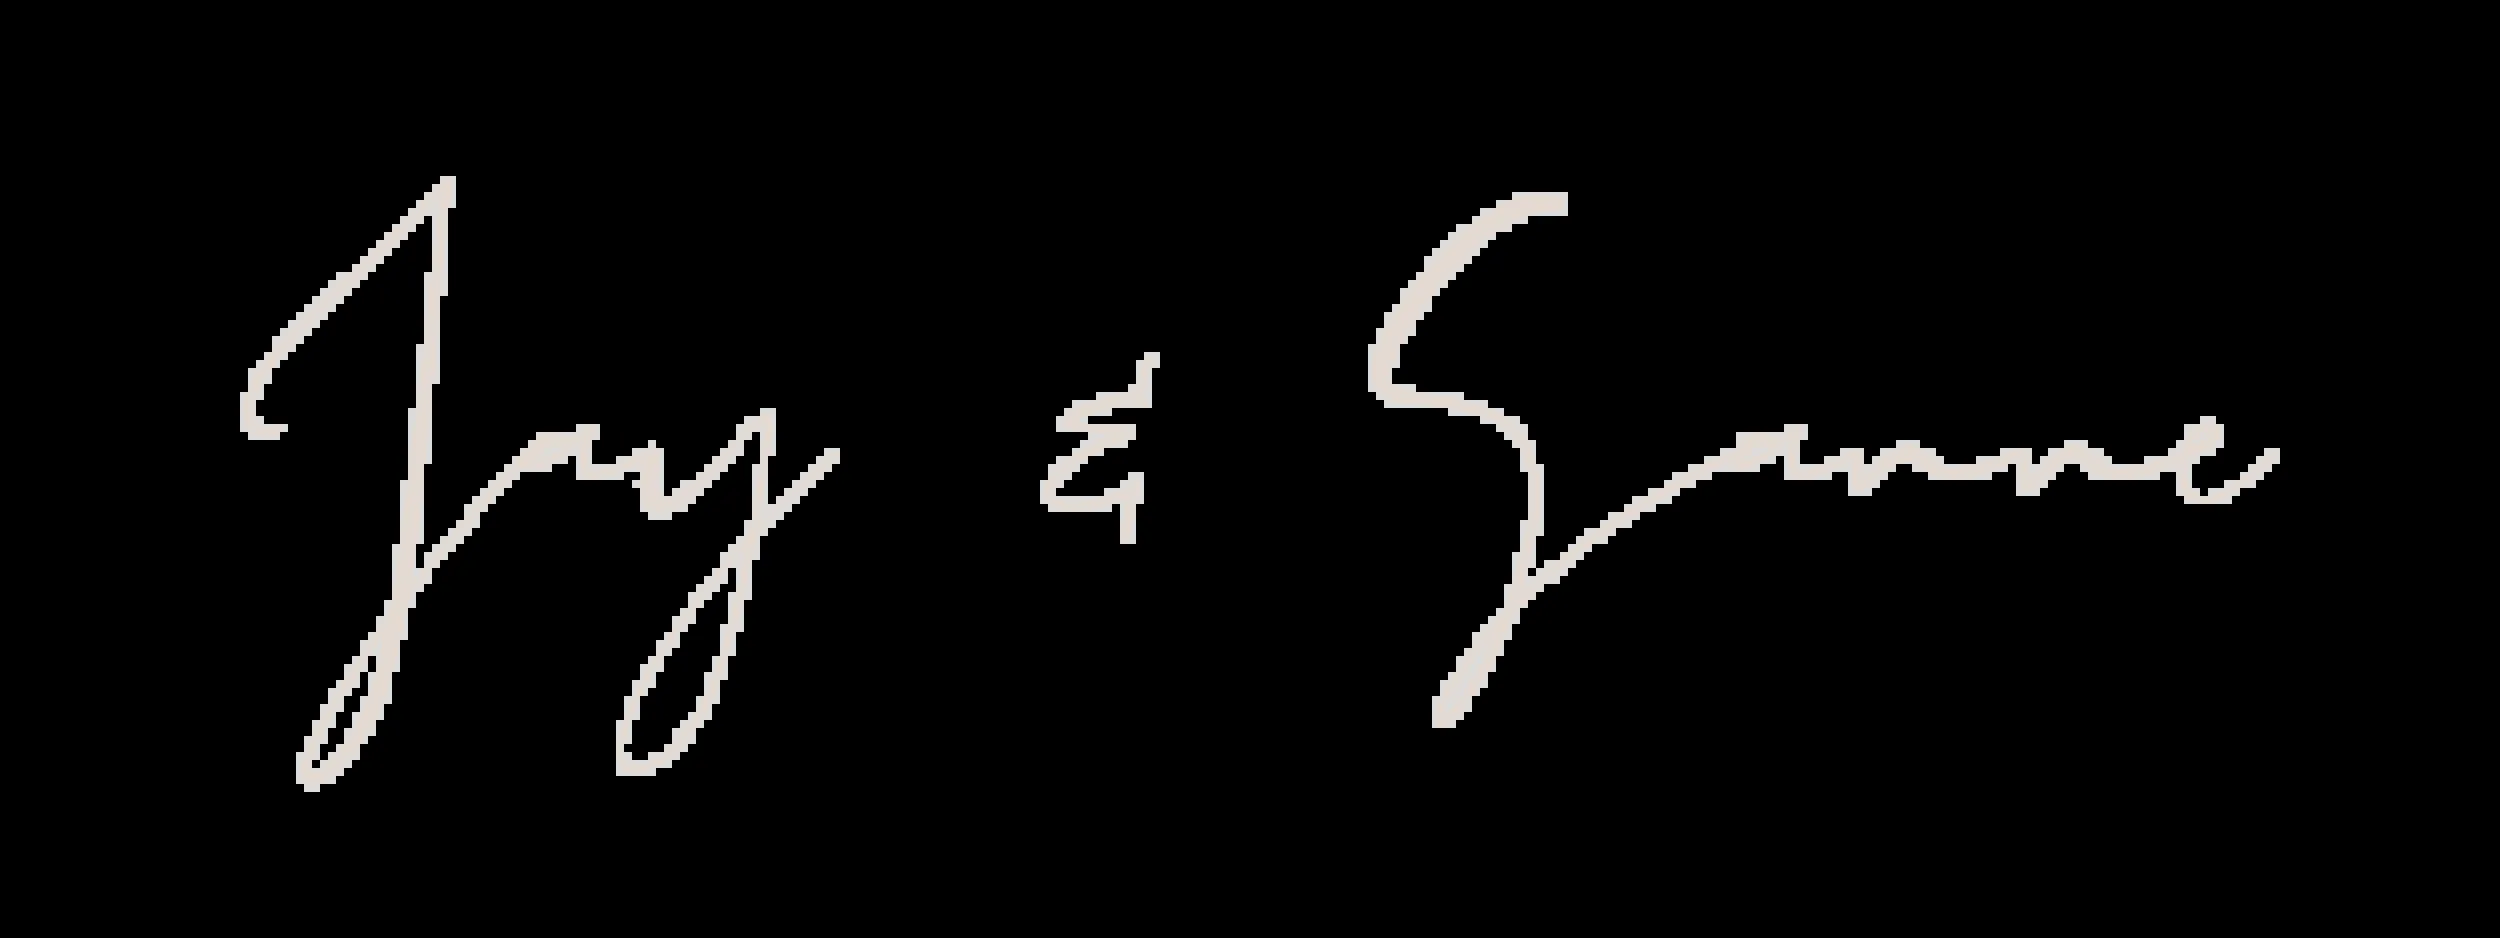 Jay & Sanne